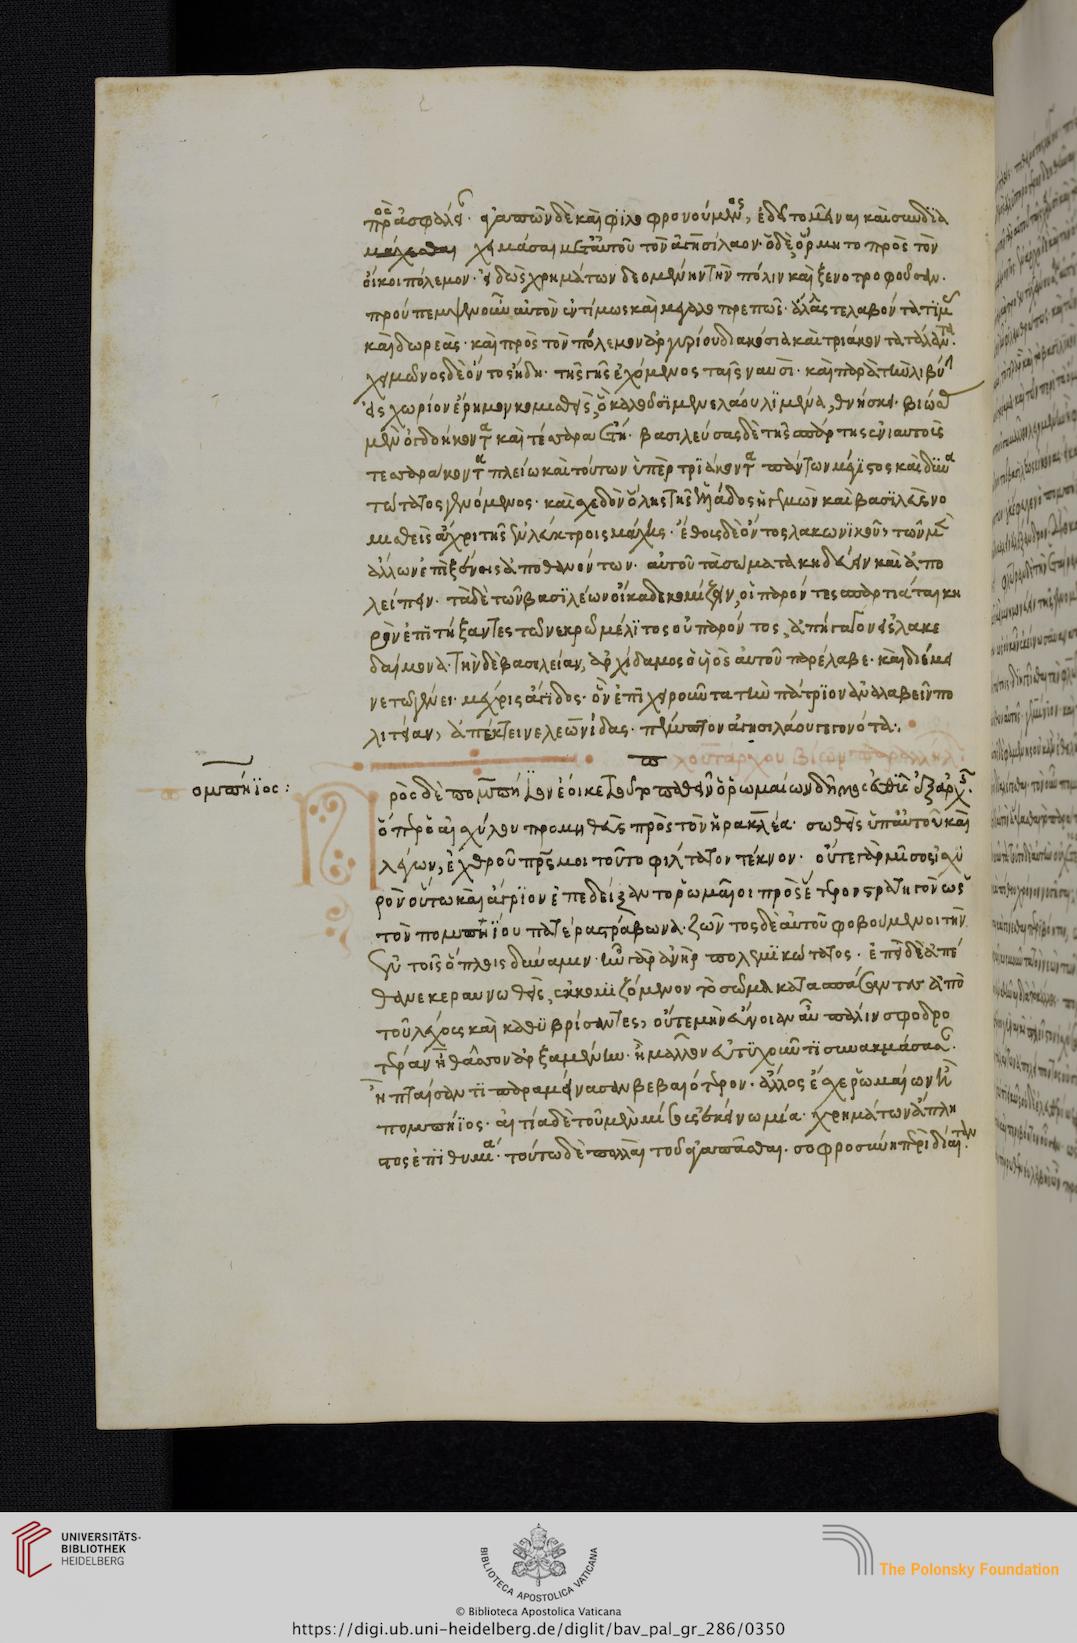 πρὸς ἀσφαλὲς. ἀγαπῶν δὲ καὶ φιλοφρονούμενος, ἐδεῖτο μεῖναι καὶ συνδια
χειμάσαι μετ' αὐτοῦ τὸν ἀγησίλαον. ὁ δὲ ὥρμητο πρὸς τὸν
οἴκοι πόλεμον. εἰδὼς χρημάτων δεομένην τὴν πόλιν καὶ ξενοτροφοῦσαν.
προύπεμψεν οὖν αὐτὸν ἐντίμως καὶ μεγαλοπρεπῶς. ἄλλας τε λαβόντα τιμὰς
καὶ δωρεὰς. καὶ πρὸς τὸν πόλεμον ἀργυρίου διακόσια καὶ τριάκοντα τάλαντα.
χειμῶνος δὲ ὄντος ἤδη. τῆς γῆς ἐχόμενος ταῖς ναυσὶ. καὶ παρὰ τὴν λιβύην
εἰς χωρίον ἔρημον κομισθεὶς, ὃ καλοῦσι μενελάου λιμένα, θνήσκει. βιώσας
μὲν ὀγδοήκοντα καὶ τέσσαρα ἔτη. βασιλεύσας δὲ τῆς σπάρτης ἑνὶ αὐτοῖς
τεσσαράκοντα πλείω καὶ τούτων ὑπὲρ τριάκοντα πάντων μέγιστος καὶ δυνα
τώτατος γενόμενος. καὶ σχεδὸν ὅλης τῆς ἑλλάδος ἡγεμὼν καὶ βασιλεὺς νο
μισθεὶς ἄχρι τῆς ἐν λεύκτροις μάχης. ἔθους δὲ ὄντος λακωνικοῦ, τῶν μὲν
ἄλλων ἐπὶ ξένοις ἀποθανόντων. αὐτοῦ τὰ σώματα κηδεύειν καὶ ἀπο
λείπειν. τὰ δὲ τῶν βασιλέων οἴκαδε κομίζειν, οἱ παρόντες σπαρτιάται κη
ρὸν ἐπιτήξαντες τῶ νεκρῶ μέλιτος οὐ παρόντος, ἀπήγαγον εἰς λακε
δαίμονα. τὴν δὲ βασιλείαν, ἀρχίδαμος ὁ υἱὸς αὐτοῦ παρέλαβε. καὶ διέμει
νε τῶ γένει. μέχρις ἄγιδος. ὃν ἐπιχειροῦντα τὴν πάτριον ἀναλαβεῖν πο
λιτείαν, ἀπέκτεινε λεωνίδας. πέμπτον ἀγησιλάου γεγονότα:.
πλουτάρχου βίων παράλληλ
πομπήϊος:
Πρὸς δὲ πομπήϊον ἔοικε τοῦτο παθεῖν ὁ ῥωμαίων δῆμος εὐθὺς ἐξ ἀρχῆς.
ὅπερ ὁ αἰσχύλου προμηθεὺς πρὸς τὸν ἡρακλέα. σωθεὶς ὑπ' αὐτοῦ καὶ
λέγων, ἐχθροῦ πρς μοι τοῦτο φίλτατον τέκνον. οὔτε γὰρ μῖσος ἰσχυ
ρὸν οὕτω καὶ ἄγριον ἐπεδείξαντο ῥωμαῖοι πρὸς ἕτερον στρατηγὸν ὡς
τὸν πομπηΐου πατέρα στράβωνα. ζῶντος δὲ αὐτοῦ φοβούμενοι τὴν
ἐν τοῖς ὅπλοις δύναμιν. ἦν γὰρ ἀνὴρ πολεμικώτατος. ἐπεὶ δὲ ἀπέ
θανε κεραυνωθεὶς, ἐκκομιζόμενον τὸ σῶμα κατασπάσαντες ἀπὸ
τοῦ λέχους καὶ καθυβρίσαντες, οὔτε μὴν εὔνοιαν αὖ πάλιν σφοδρο
τέραν ἢ θᾶσσον ἀρξαμένην. ἢ μᾶλλον εὐτυχοῦντι συνακμάσασαν.
ἢ πταίσαντι παραμείνασαν βεβαιότερον. ἄλλος ἔσχε ῥωμαίων ἢ
πομπήϊος. αἰτία δὲ τοῦ μὲν μίσους ἐκείνω μία. χρημάτων ἄπλη
στος ἐπιθυμία. τούτω δὲ πολλαὶ τοῦ ἀγαπᾶσθαι. σοφροσύνη περὶ δίαιταν.
UNIVERSITÄTS-
BIBLIOTHEK
HEIDELBERG
BIBLIOTECA APOSTOLICA VATICANA
The Polonsky Foundation
© Biblioteca Apostolica Vaticana
https://digi.ub.uni-heidelberg.de/diglit/bav_pal_gr_286/0350